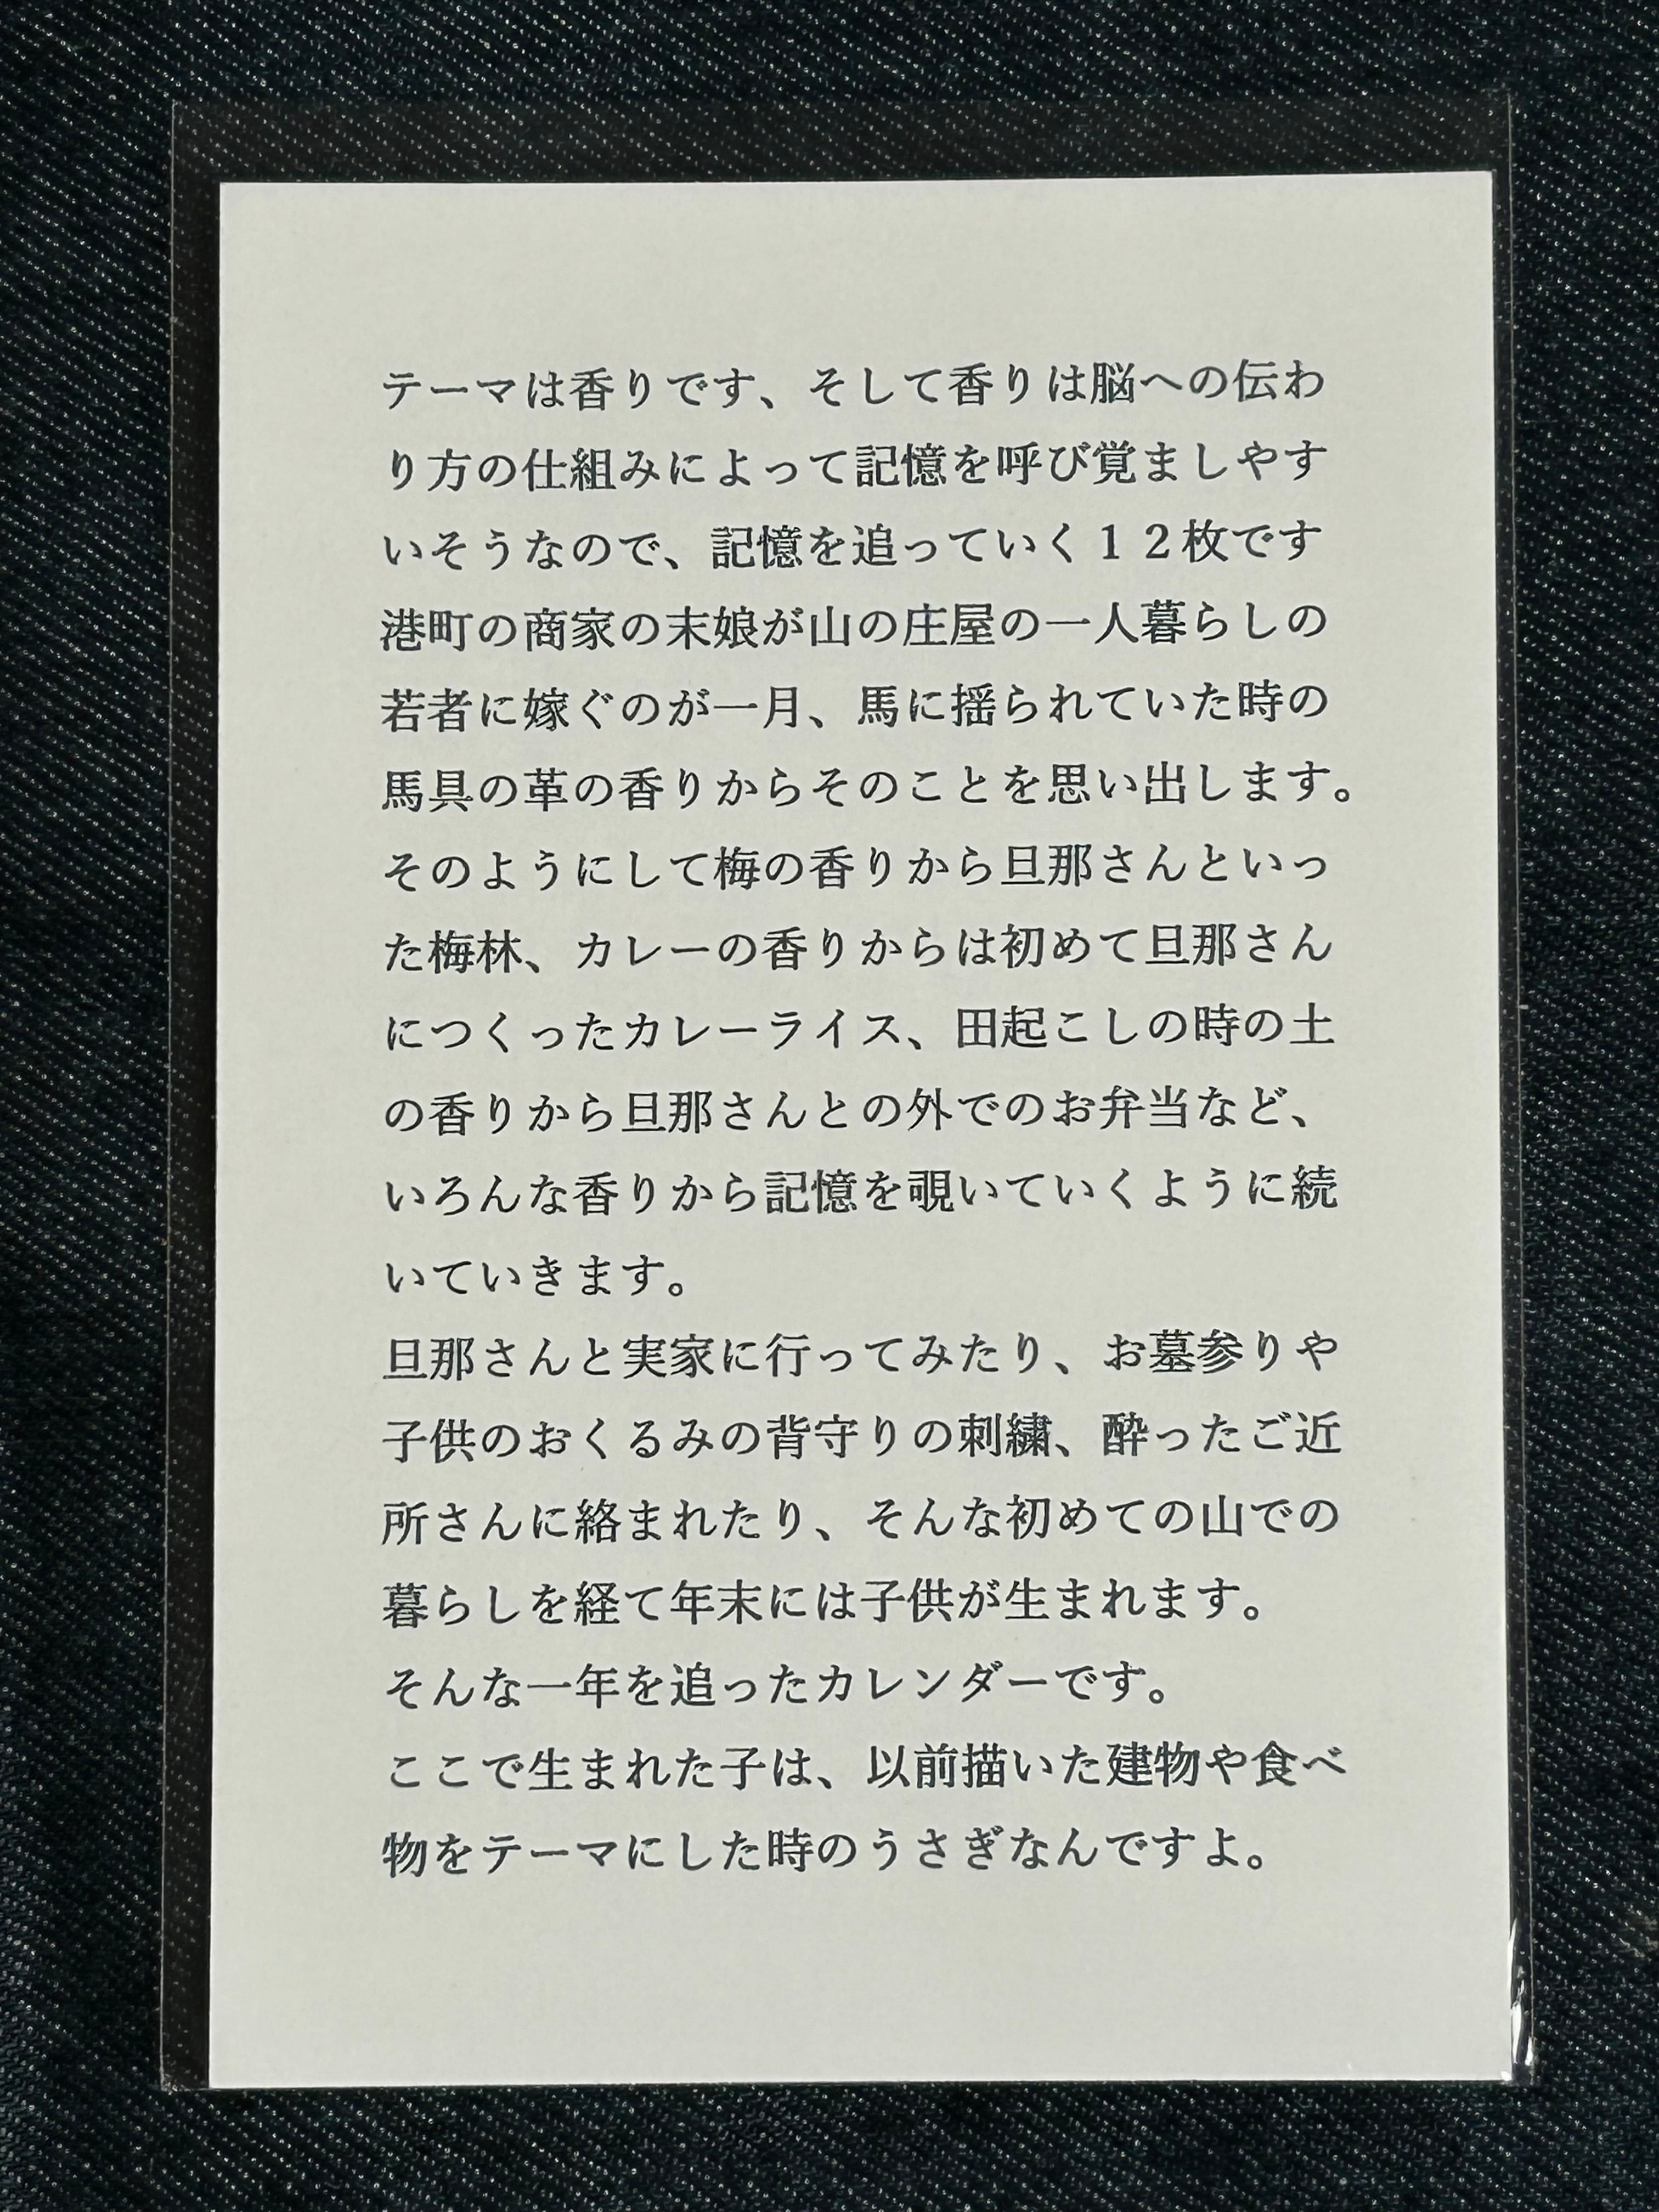 テーマは香りです、そして香りは脳への伝わ
り方の仕組みによって記憶を呼び覚ましやす
いそうなので、記憶を追っていく１２枚です
港町の商家の末娘が山の庄屋の一人暮らしの
若者に嫁ぐのが一月、馬に揺られていた時の
馬具の革の香りからそのことを思い出します。
そのようにして梅の香りから旦那さんといっ
た梅林、カレーの香りからは初めて旦那さん
につくったカレーライス、田起こしの時の土
の香りから旦那さんとの外でのお弁当など、
いろんな香りから記憶を覗いていくように続
いていきます。
旦那さんと実家に行ってみたり、お墓参りや
子供のおくるみの背守りの刺繍、酔ったご近
所さんに絡まれたり、そんな初めての山での
暮らしを経て年末には子供が生まれます。
そんな一年を追ったカレンダーです。
ここで生まれた子は、以前描いた建物や食べ
物をテーマにした時のうさぎなんですよ。